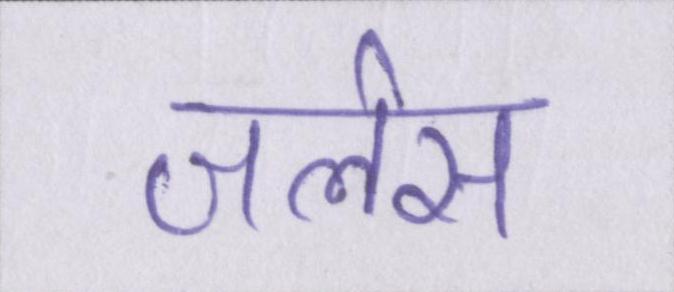 जलेस